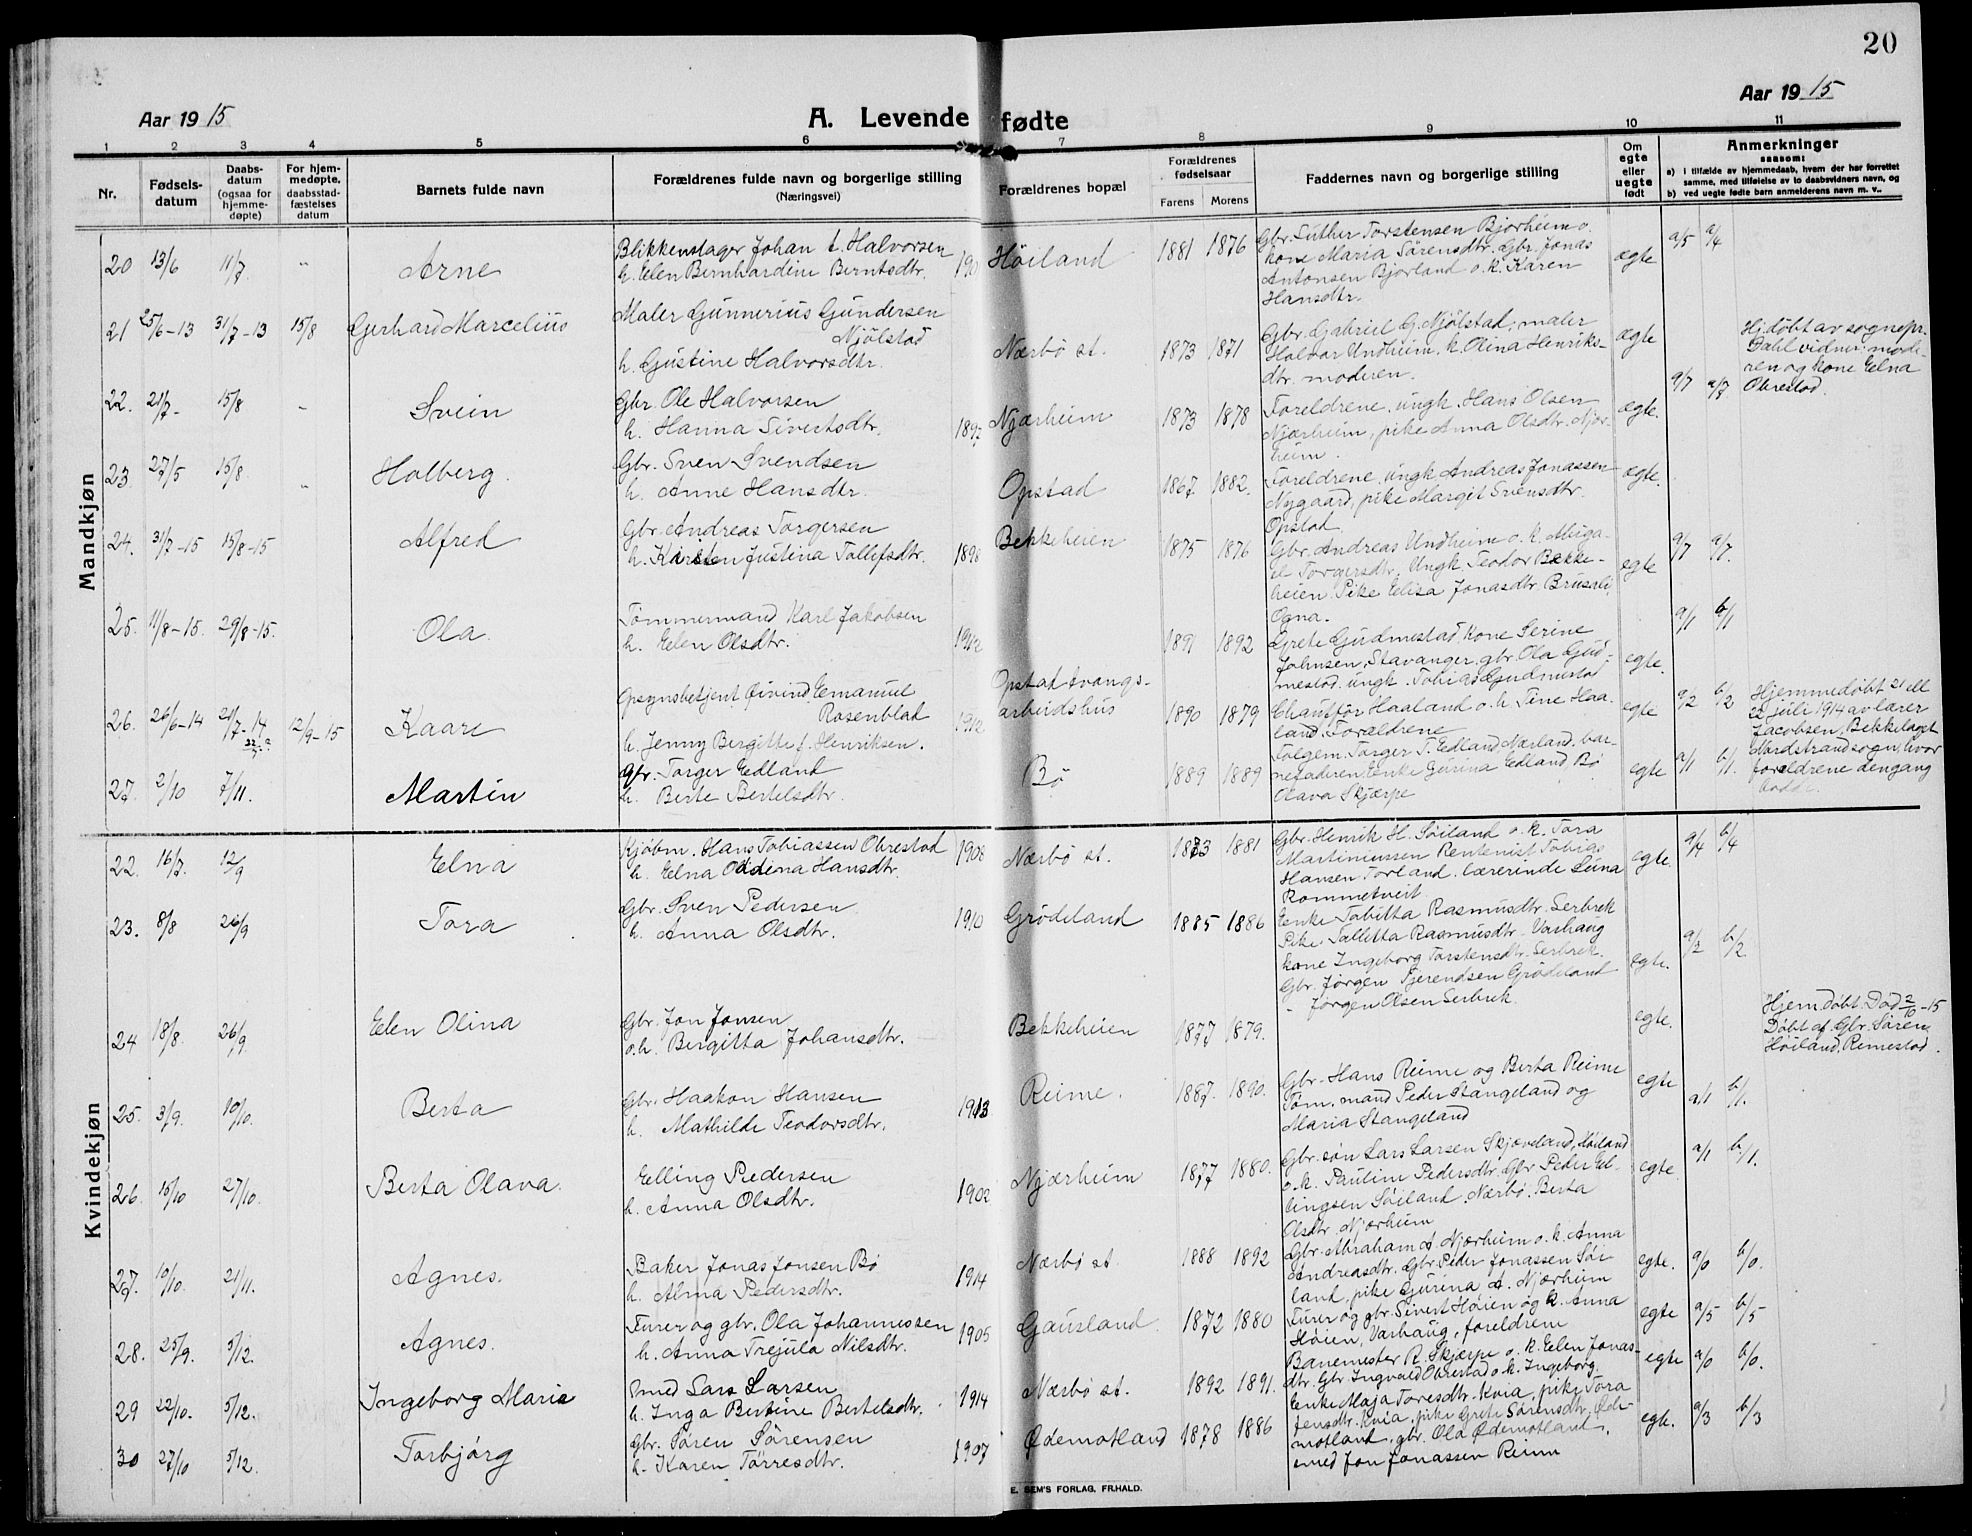 20
Aar 1915
A. Levende fødte
Aar 1915
1 2 3 4 5 6 7 8 9 10 11
Nr.
Fødsels-
datum
Daabs-
datum
(ogsaa for
hjemme-
døpte)
For hjem-
medøpte,
daabsstad-
fæstelses
datum
Barnets fulde navn
Forældrenes fulde navn og borgerlige stilling
(Næringsvei)
Forældrenes bopæl
Forældrenes
fødselsaar
Farens Morens
Faddernes navn og borgerlige stilling
Om
egte
eller
uegte
født
Anmerkninger
saasom:
a) i tilfælde av hjemmedaab, hvem der har forrettet
samme, med tilføielse av to daabsvidners navn, og
b) ved uegte fødte barn anmelderens navn m. v..
Mandkjøn
20 13/6 11/7 " Arne
Blikkenslager Johan t. Halvorsen
h. Elen Bernhardine Berntsdtr. 190
Høiland 1881 1876
Gbr. Luther Torstensen Bjorheim o.
kone Maria Sørensdtr. Gbr. Jonas
Antonsen Bjorland o. k. Karen
Hansdtr.
ægte a/5 a/4
21 25/6-13 31/7-13 15/8 Gerhard Marcelius
Maler Gunnerius Gundersen
Njølstad
h. Gustine Halvorsdtr.
Nærbø st. 1873 1871
Gbr. Gabriel G. Njølstad, maler
Halvar Undheim, k. Olina Henriks-
dtr. moderen.
ægte
Hj. døbt av sognepr.
Dahl vidner: mode-
ren og kone Elna
Obrestad.
22. 21/7- 15/8 - Svein
Gbr. Ole Halvorsen
h. Hanna Sivertsdtr. 1897
Njærheim 1873 1878
Foreldrene, ungk. Hans Olsen
Njærheim, pike Anna Olsdtr. Njær-
heim.
egte. a/7
23 27/5 15/8 " Holberg.
Gbr. Sven Svendsen
h. Anne Hansdtr.
Opstad 1867 1882.
Foreldrene, ungk Andreas Jonassen
Nygaard, pike Margit Svensdtr.
Opstad
egte.
24. 31/7-15 15/8-15 Alfred
Gbr. Andreas Torgersen
h. Kirsten Justina Tollefsdtr. 1898
Bekkeheien 1875 1876
Gbr. Andreas Undheim o. k. Abiga-
el Torgersdtr. Ungk Teodor Bekke-
heien. Pike Elisa Jonasdtr. Brusali
Ogna.
egte a/7 a/7.
25. 11/8-15. 29/8-15. Ola.
Tømmermand Karl Jakobsen
h. Elen Olsdtr. 1912
1891 1892
Grete Gudmestad, kone Serine
Johnsen, Stavanger, gbr. Ola Gud-
mestad. ungk. Tobias Gudmestad
egte. a/1 b/1
26. 26/6-14 21/7-14 12/9-15 Kaare
Opsynsbetjent Øivind Emanuel
Rosenblad
h. Jenny Bergitte f. Henriksen. 1912
Opstad tvangs-
arbeidshus 1890 1879
Chauffør Haaland o. h. Tine Haa-
land. Foraldrene
egte a/2 b/2
Hjemmedøbt 21 ell
22 juli 1914 av lærer
Jacobsen, Bekkelaget
Nordstrand sogn, hvor
foreldrene dengang
bodde.
27. 2/10 7/11. Martin
Gbr. Torger Edland
h. Berte Bertelsdtr.
Bø 1889 1889
Folgem. Torger T. Edland Nærland. bar-
nefaderen Enke Gurina Edland, Bø
Olava Skjærpe
egte a/1 b/1.
Kvindekjøn
22. 16/7. 12/9 Elna
Kjøbm. Hans Tobiassen Obrestad
h. Elna Oddina Hansdtr. 1908
Nærbø st. 1883 1881
Gbr. Henrik H. Søiland o. k. Tora
Martiniussen Rentenist Tobias
Hansen Torland. lærerinde Leina
Rommetveit
egte. a/4 b/4
23. 8/8 26/9 Tora
Gbr. Sven Pedersen
h. Anna Olsdtr. 1910
Grødeland 1885 1886
Enke Tabitta Rasmusdtr. Serbrek
Pike Tallitta Rasmusdtr. Varhaug
kone Ingeborg Torstensdtr. Serbrek.
Gbr. Jørgen Tjerendsen Grødeland
- Jørgen Olsen Serbrek.
egte. a/2 b/2
24 18/8. 26/9. Elen Olina
Gbr. Jon Jonsen
o.h. Bergitta Johansdtr.
Bekkeheien 1877 1879.
egte.
Hjem. døbt. Død 2/10-15
Døbt af Gbr. Søren
Høiland, Remestad.
25. 3/9. 10/10. Berta
Gbr. Haakon Hansen
h. Mathilde Teodorsdtr. 1913
Reime. 1887. 1890.
Gbr. Hans Reime og Berta Reime
Tøm. mand Peder Stangeland og
Maria Stangeland
egte a/1 b/1.
26. 15/10 27/10. Berta Olava.
Elling Pedersen
h. Anna Olsdtr. 1902
Njærheim 1877 1880.
Gbr. søn Lars Larsen Skjæveland, Høiland
o. k. Pauline Pedersdtr. Gbr Peder El-
lingsen Søiland. Nærbø. Berta
Olsdtr. Njærheim
egte. a/1 b/1.
27. 10/10. 21/11. Agnes.
Baker Jonas Jonsen Bø
h. Alma Pedersdtr. 1914
Nærbø st. 1888 1892
Gbr. Abraham A Njærheim o. k. Anna
Andreasdtr. Gbr. Peder Jonassen Sør-
land, pike Gurina A. Njærheim
egte. a/0 b/0.
28. 25/9. 5/12. Agnes.
Furer og gbr. Ola Johannessen
h. Anna Trejula Nilsdtr. 1905
Gausland. 1872 1880
Furer og gbr. Sivert Høien og k. Anna
Høien, Varhaug, foreldrene
egte a/5 b/5
29 22/10. 5/12. Ingeborg Marie
Smed Lars Larsen
h. Inga Bertine Bertelsdtr. 1914
Nærbø st. 1892 1891.
Banemester R. Skjærpe o. k. Elen Jonas-
dtr. Gbr. Ingvald Obrestad o. k. Ingeborg.
egte a/0 b/0.
30 27/10 5/12. Torbjørg
Gbr. Søren Sørensen
h. Karen Tørresdtr. 1907
Ødemotland 1878 1886
Enke Maja Toresdtr. Kvia, pike Tora
Jensdtr. Kvia, pike Grete Sørensdtr. Øde-
motland, gbr. Ola Ødemotland,
smed Jon Jonassen Reime
egte. a/3 b/3
E. SEM'S FORLAG, FR.HALD.